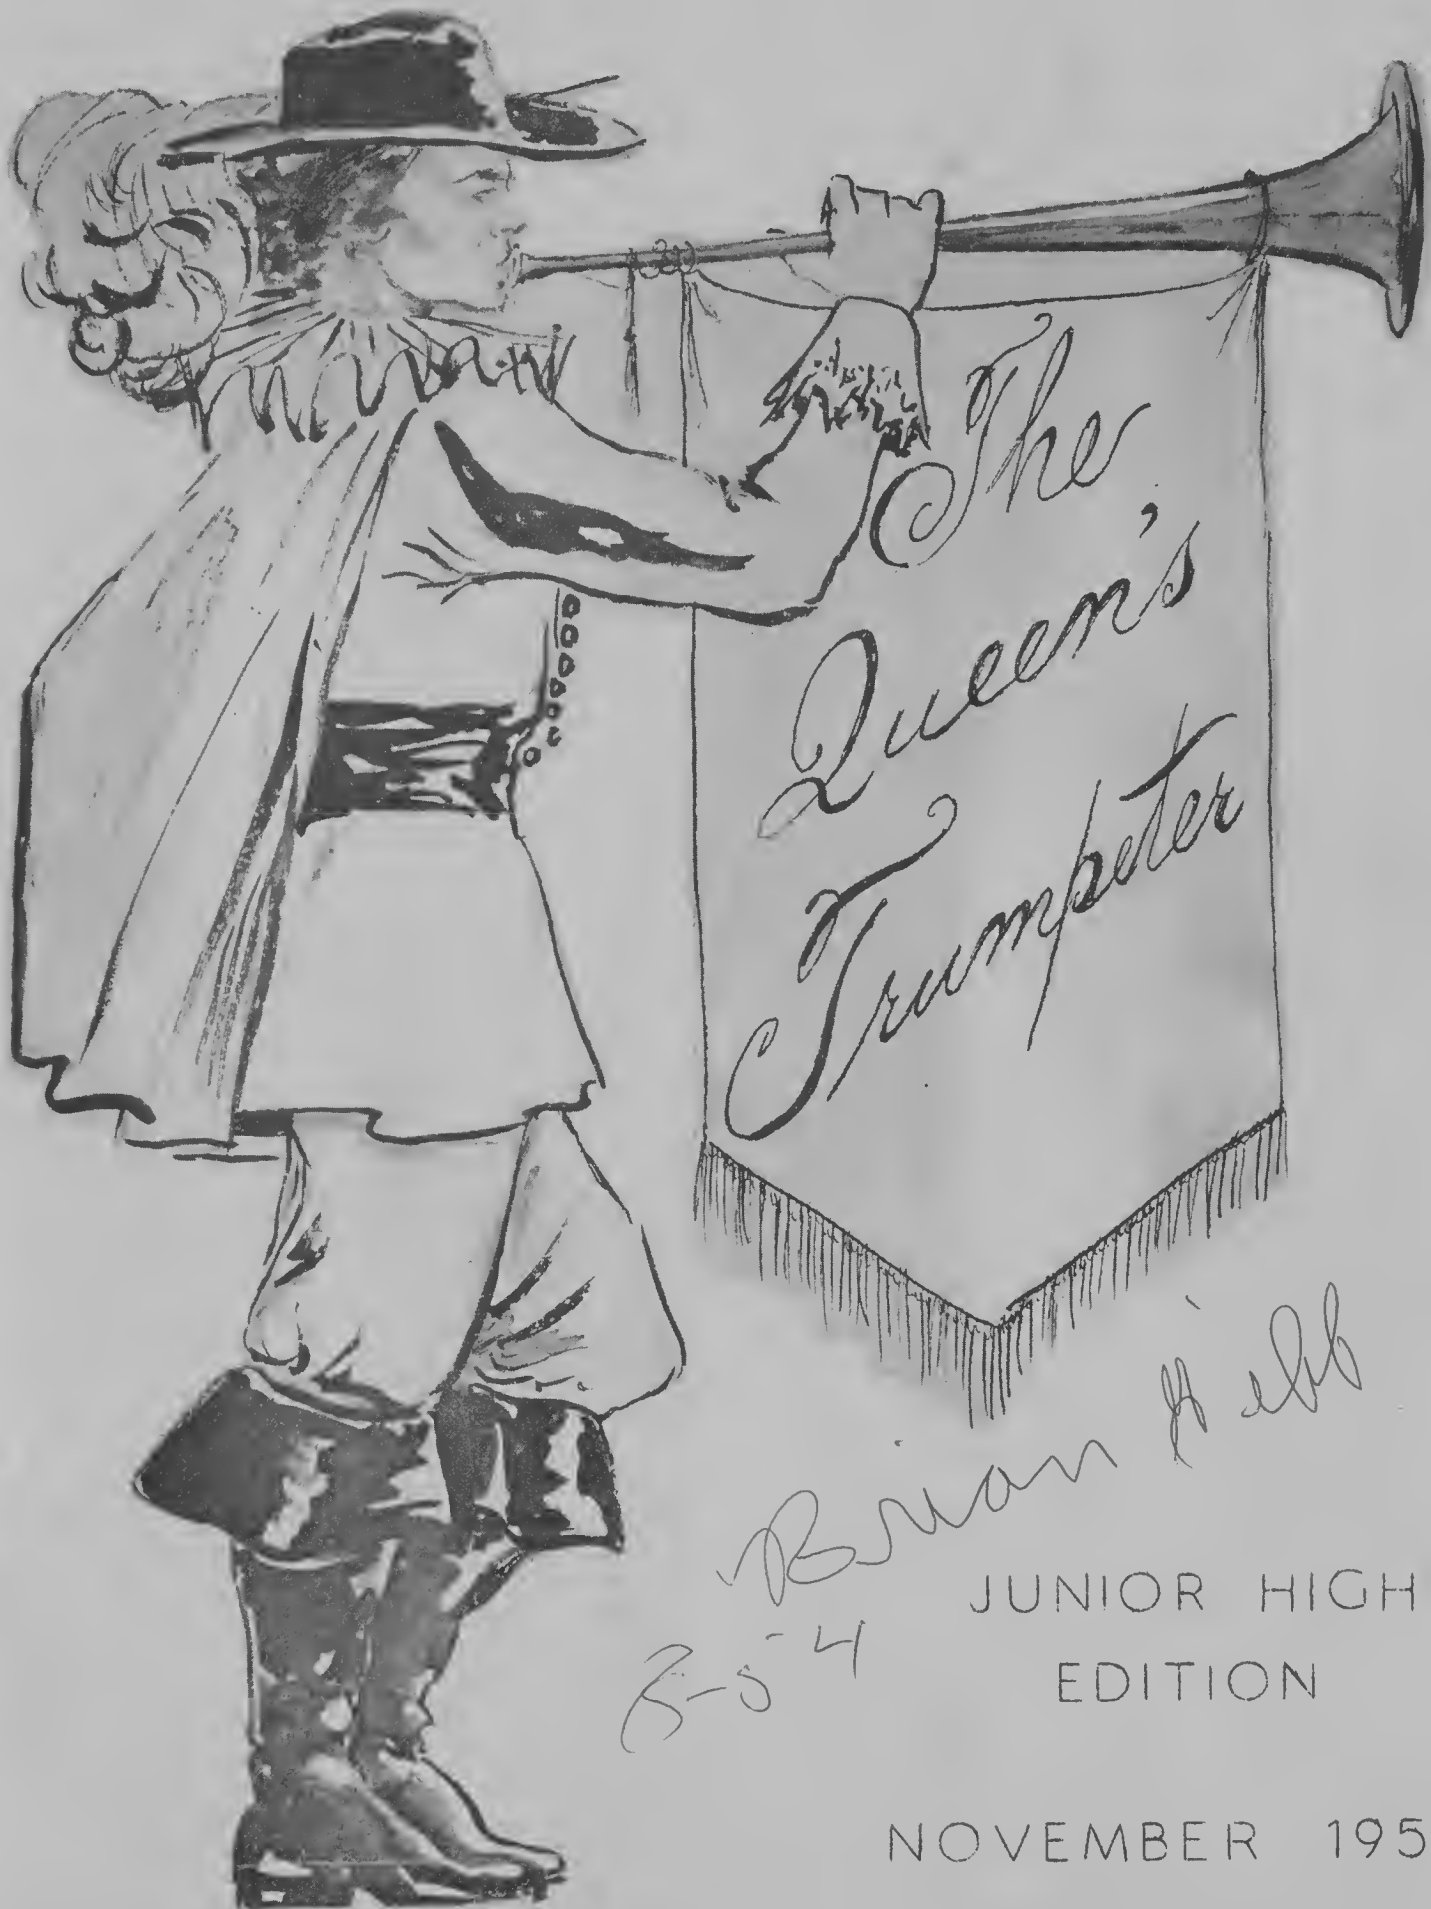 The
Queen's
Trumpeter
Brian Hebb
8-54
JUNIOR HIGH
EDITION
NOVEMBER 195